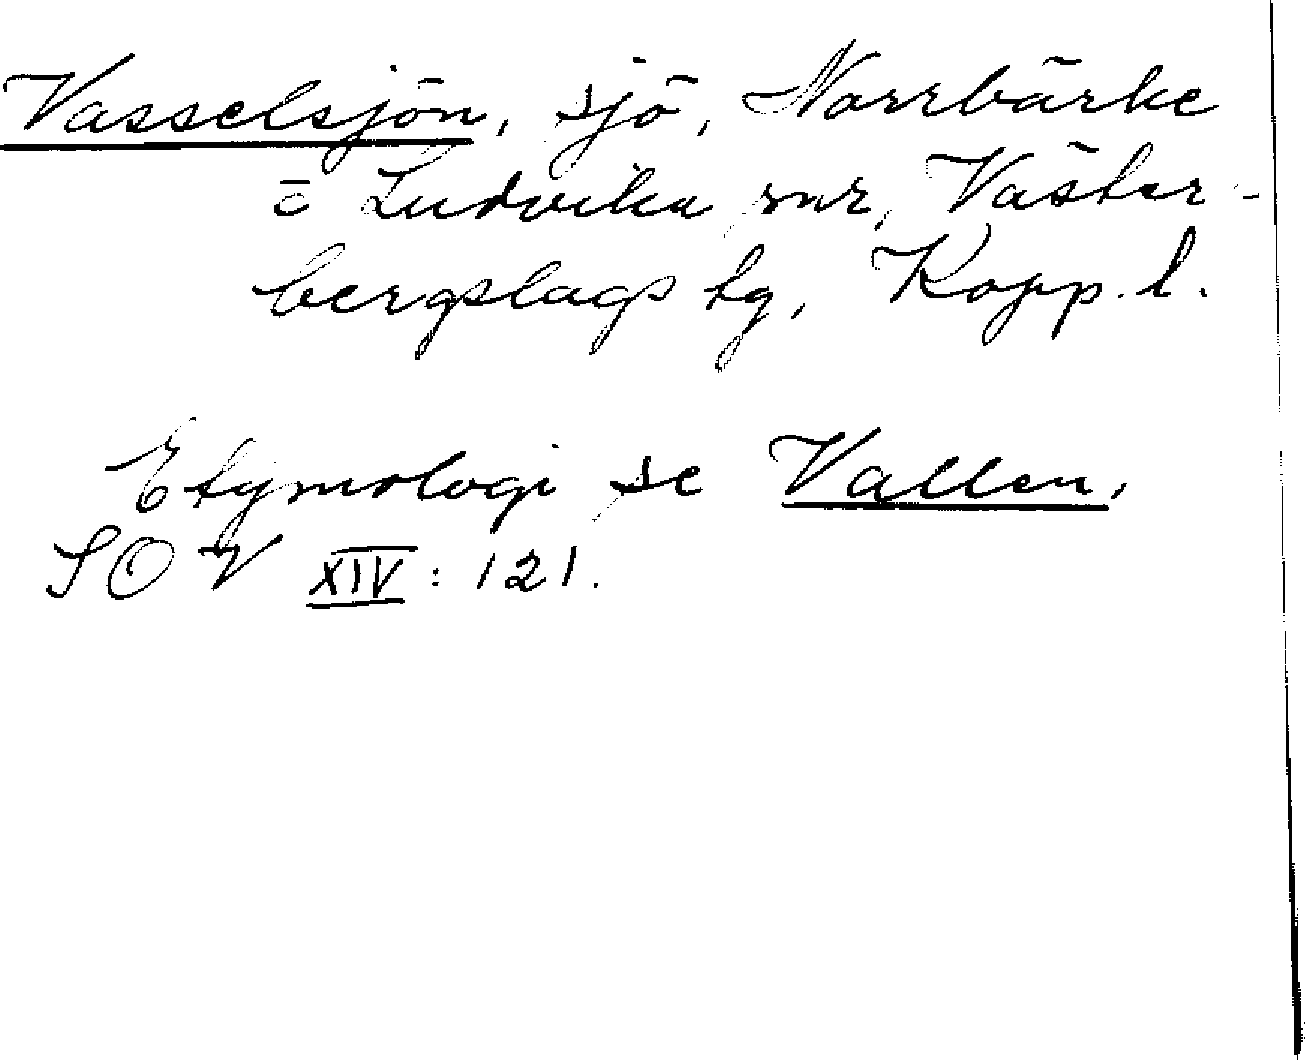 Vasselsjön, sjö, Norrbärke
o Ludvika snr, Väster-
bergslags tg, Kopp. l.
Etymologi se Vallen.
SOV XIV: 121.